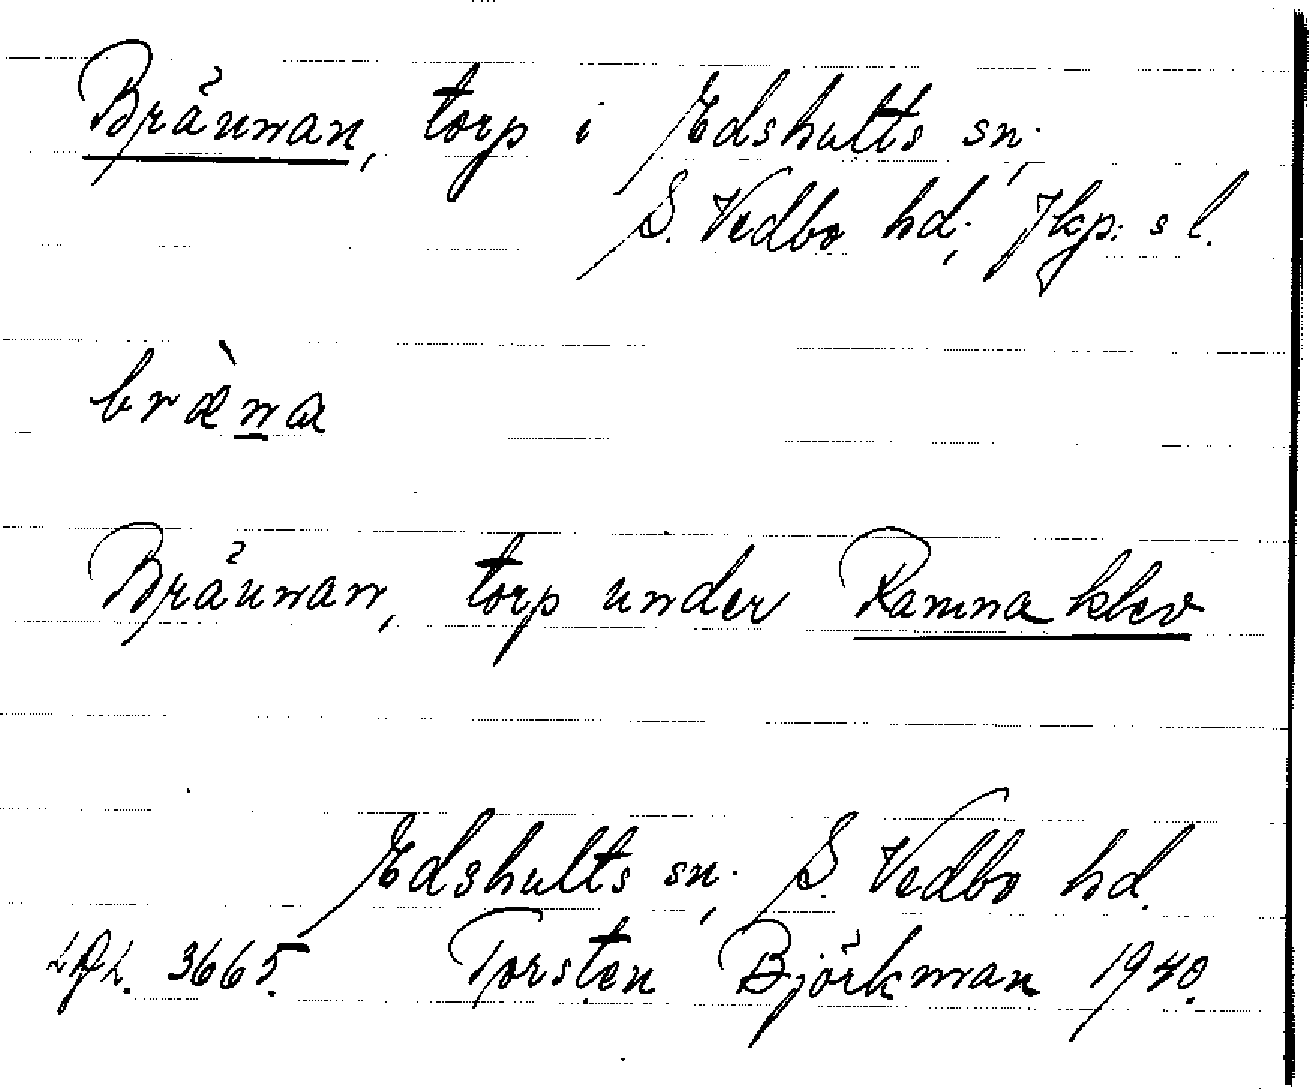 Brännan, torp i Edshults sn.,
S. Vedbo hd., Jkp:s l.
bræ̀na
Brännan, torp under Ramnaklev
Edshults sn., S. Vedbo hd.
3665. Torsten Björkman 1940.